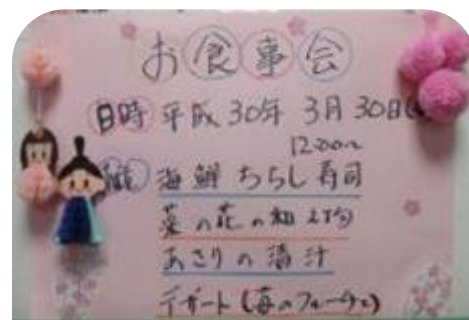 お食事会
日時 平成30年 3月30日(
12:00〜
海鮮ちらし寿司
菜の花の和え物
あさりの清汁
デザート(苺のフルーチェ)